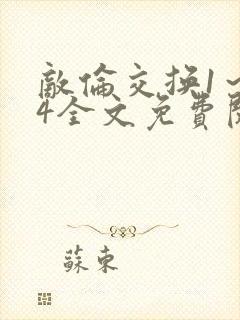 敵倫交換1～
4全文免費閱
蘇東